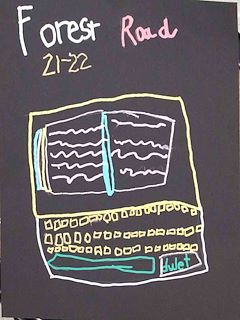 Forest Road
21-22
duet